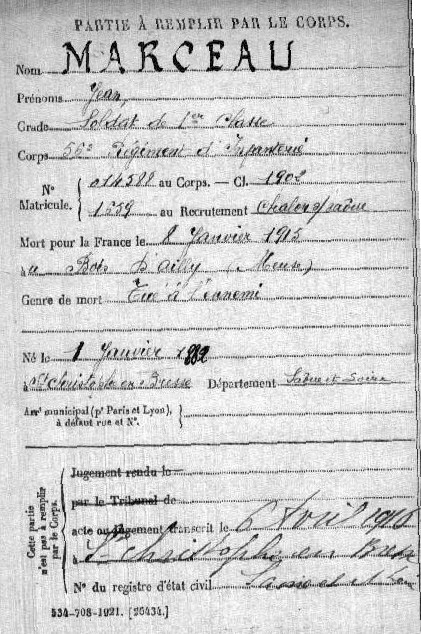 PARTIE À REMPLIR PAR LE CORPS.
Nom MARCEAU
Prénoms Jean
Grade Soldat de 1ere Classe
Corps 56e Régiment d'Infanterie
N° Matricule. { 014588 au Corps. — Cl. 1902
1559 au Recrutement Chalon s/ Saône
Mort pour la France le 8 Janvier 1915
à au Bois d'ailly (Meuse)
Genre de mort Tué à l'ennemi
Né le 1 Janvier 1882
à St Christophe en Bresse Département Saône et Loire
Arrt municipal (pr Paris et Lyon), à défaut rue et N°.
Cette partie n'est pas à remplir par le Corps.
Jugement rendu le
par le Tribunal de
acte ou jugement transcrit le 6 Avril 1915
à St Christophe en Bresse
N° du registre d'état civil Saône et Loire
534-708-1921. [26434.]